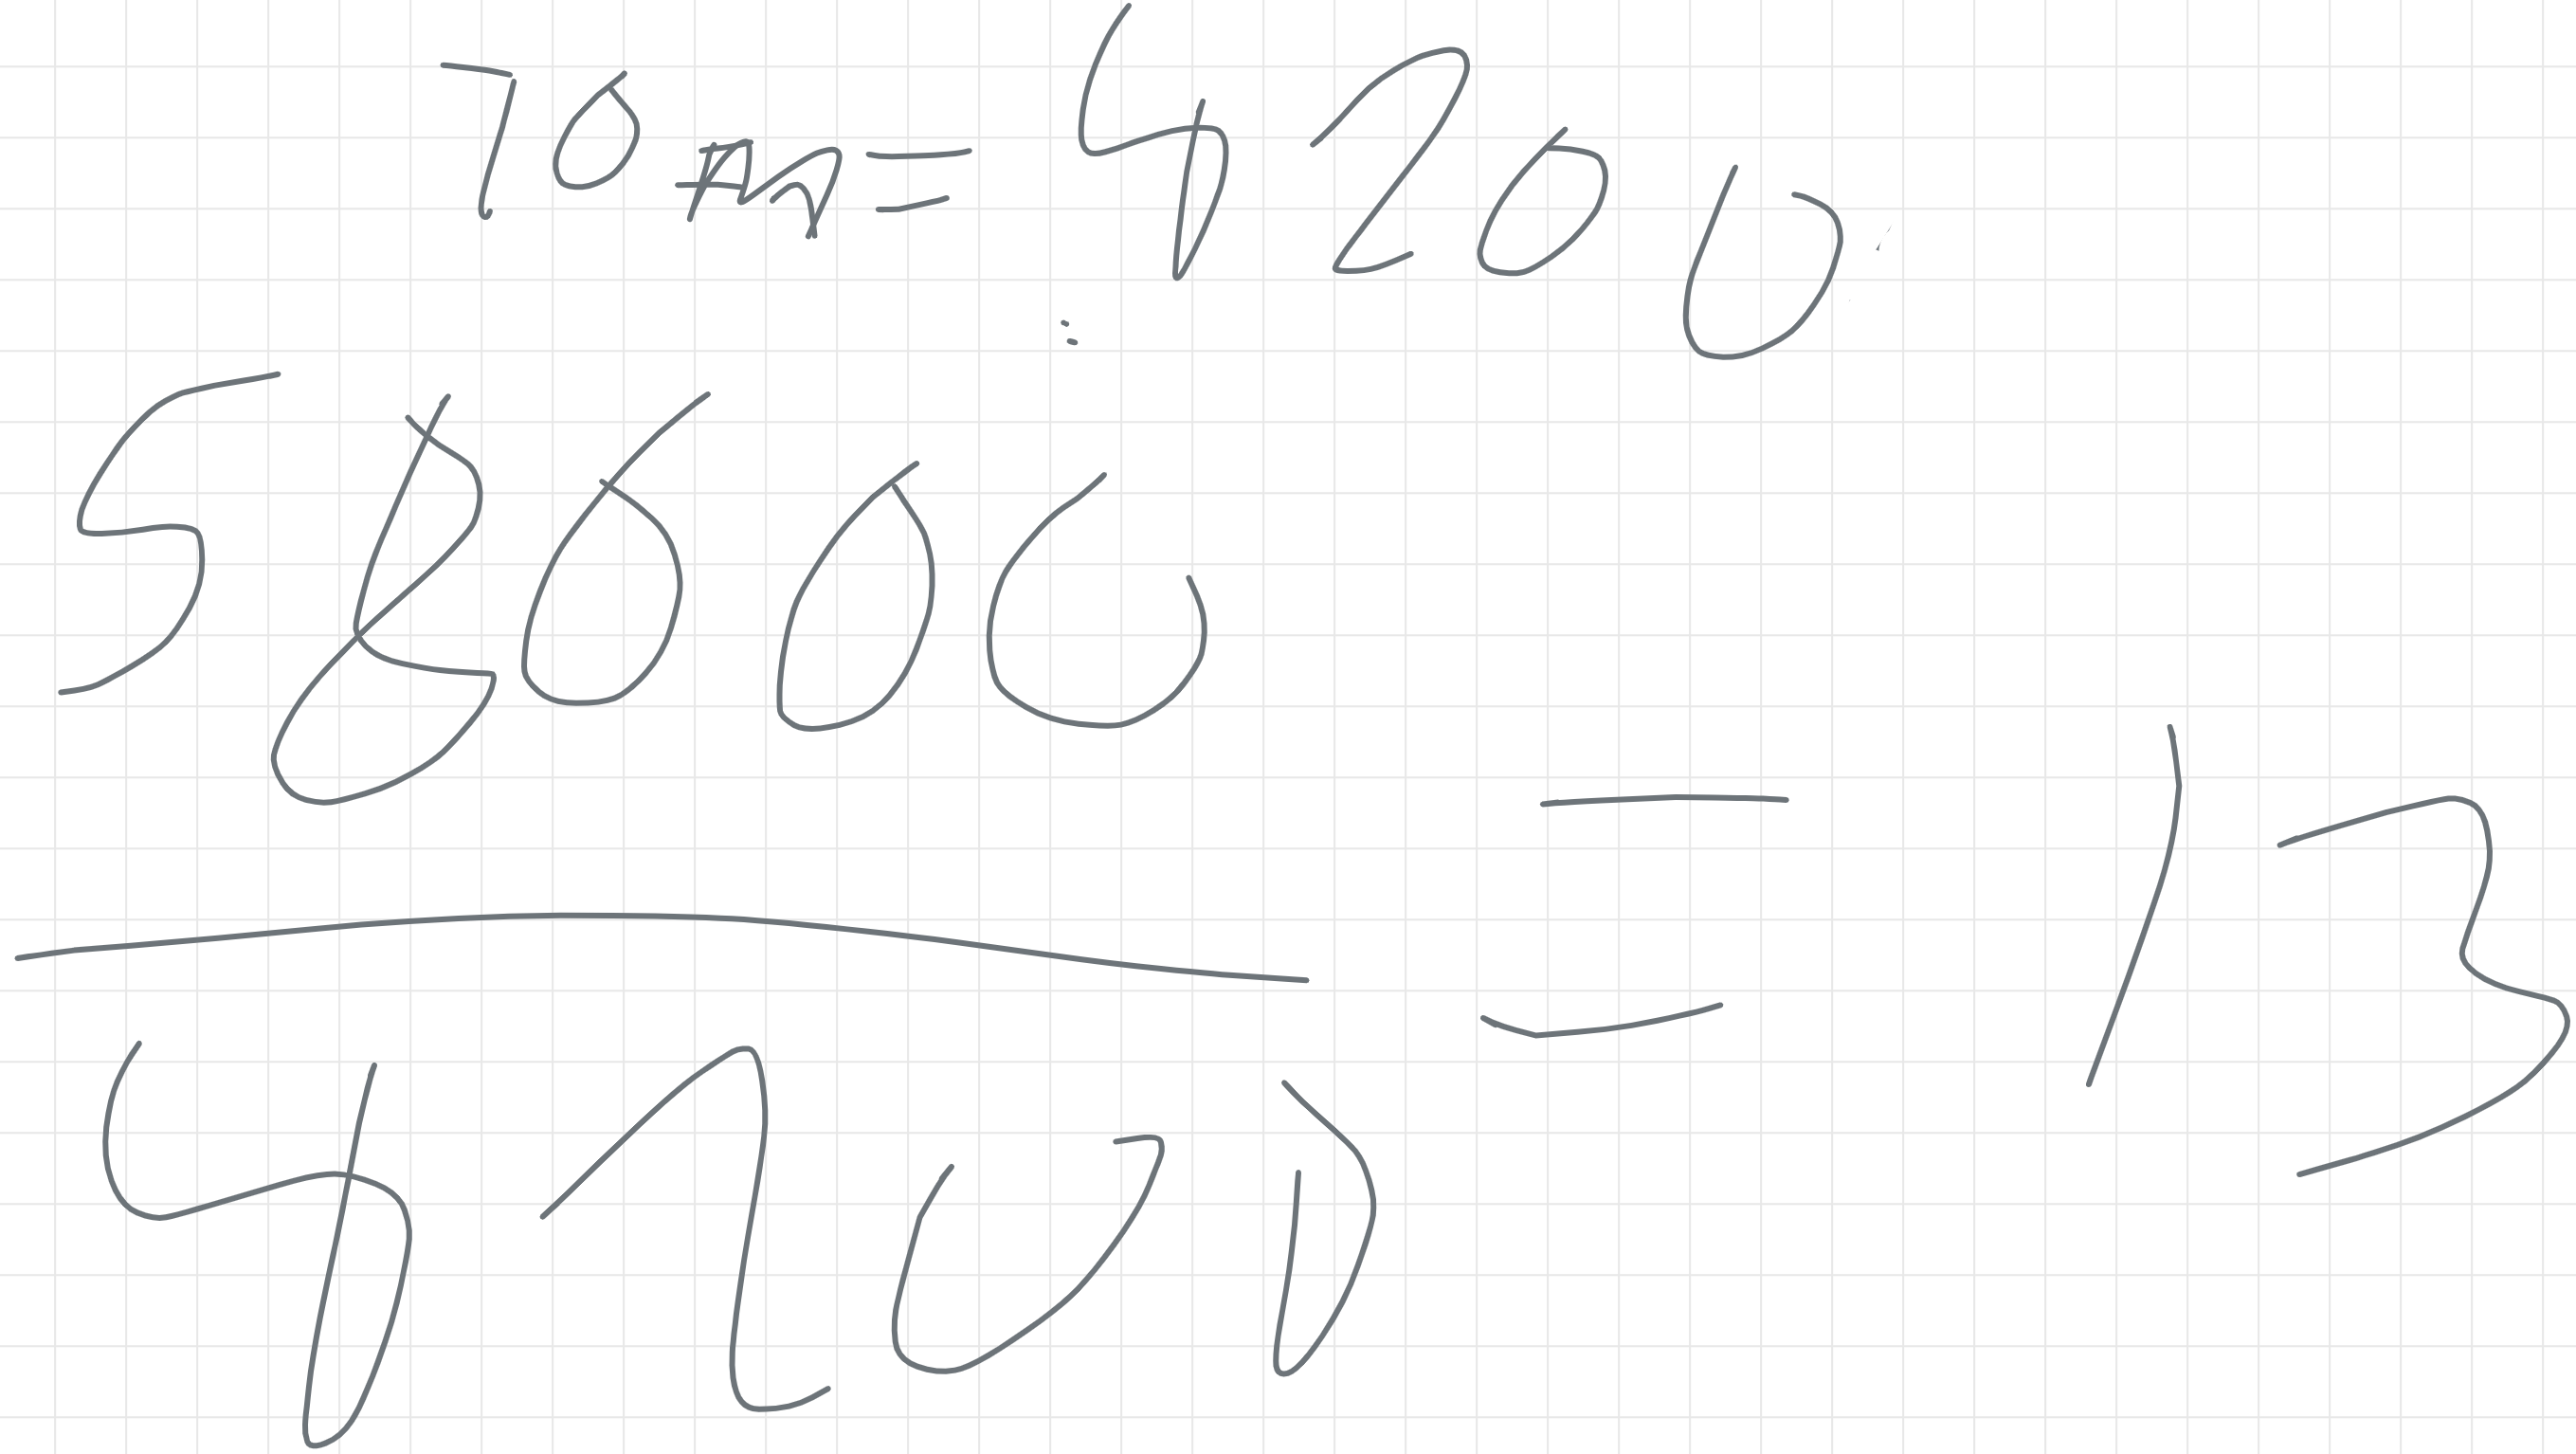 70 = 4200
58000
4200
= 13